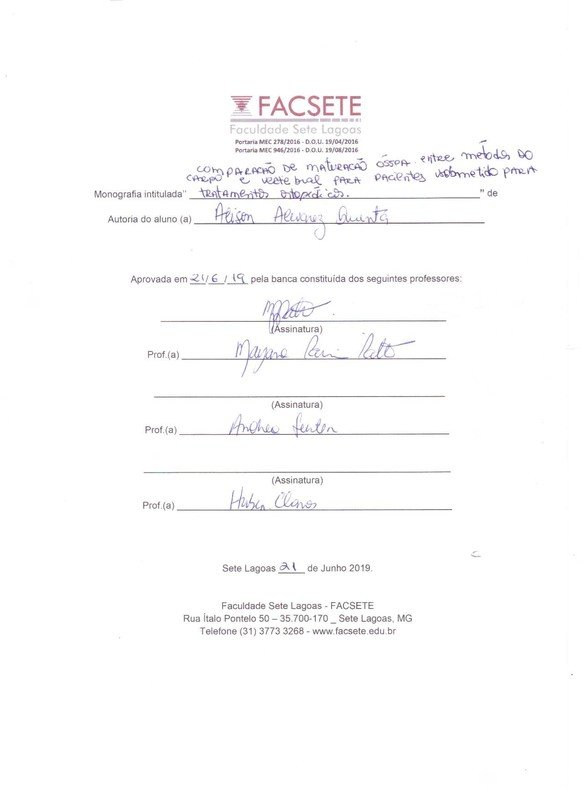 FACSETE
Faculdade Sete Lagoas
Portaria MEC 278/2016 - D.O.U. 19/04/2016
Portaria MEC 946/2016 - D.O.U. 19/08/2016
COMPARAÇÃO DE MATURAÇÃO ÓSSEA entre métodos DO
CARPO E vertebral PARA pacientes submetido PARA
Monografia intitulada" tratamentos ortopédicos. " de
Autoria do aluno (a) Alison Alvarez
Aprovada em 21/6/19 pela banca constituída dos seguintes professores:
(Assinatura)
Prof.(a)
(Assinatura)
Prof.(a) Andrea
(Assinatura)
Prof.(a)
Sete Lagoas 21 de Junho 2019.
Faculdade Sete Lagoas - FACSETE
Rua Ítalo Pontelo 50 – 35.700-170 _ Sete Lagoas, MG
Telefone (31) 3773 3268 - www.facsete.edu.br